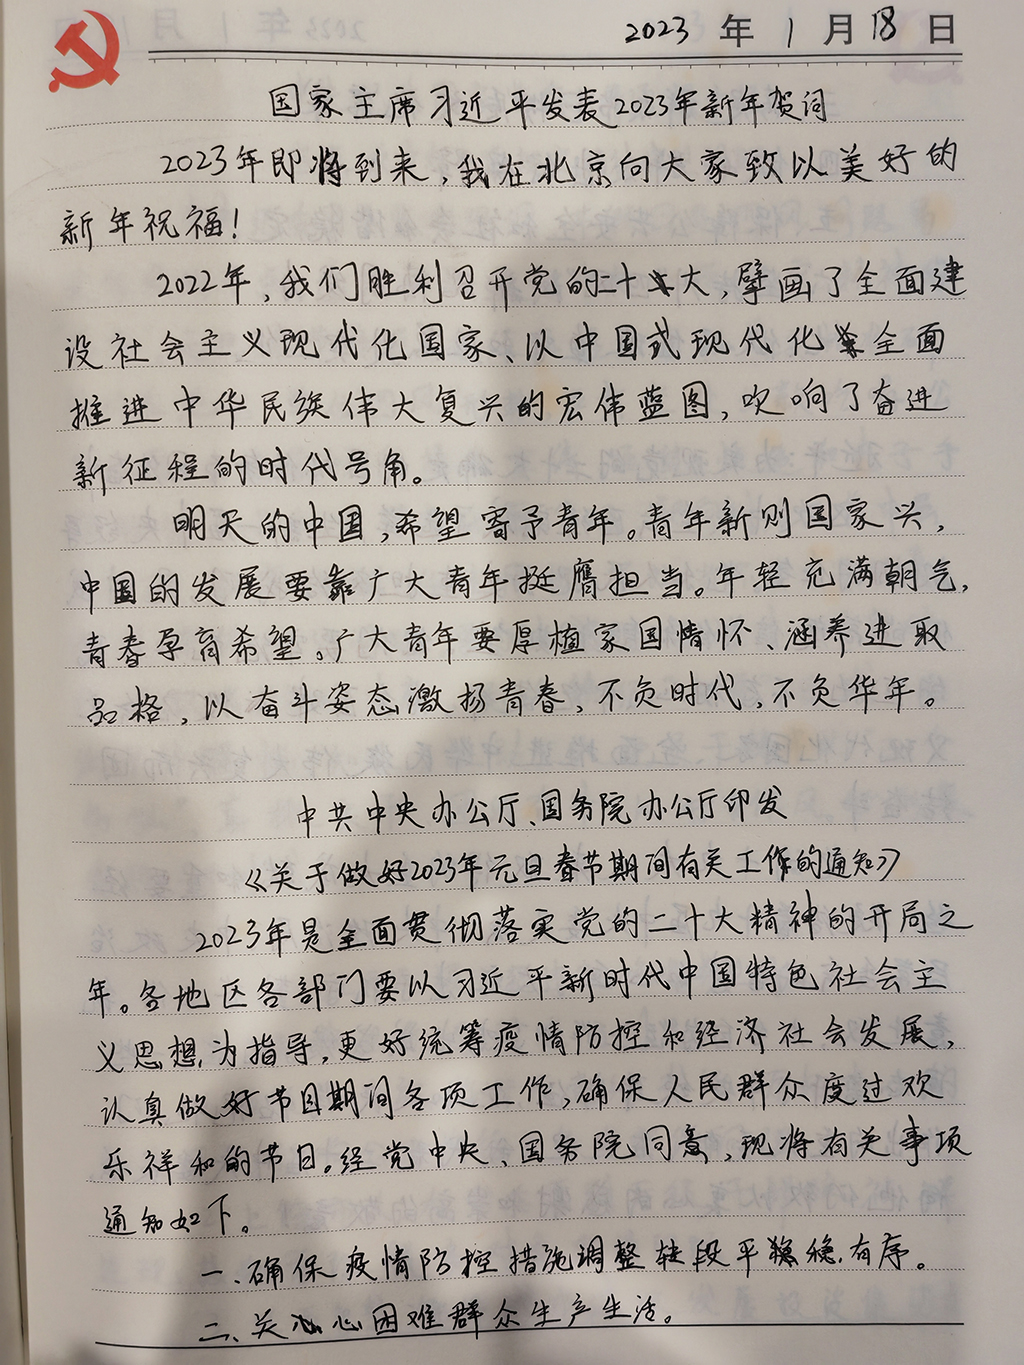 2023 年 1 月 18 日
国家主席习近平发表2023年新年贺词
2023年即将到来,我在北京向大家致以美好的
新年祝福!
2022年,我们胜利召开党的二十大,擘画了全面建
设社会主义现代化国家、以中国式现代化全面
推进中华民族伟大复兴的宏伟蓝图,吹响了奋进
新征程的时代号角。
明天的中国,希望寄予青年。青年新则国家兴,
中国的发展要靠广大青年挺膺担当。年轻充满朝气,
青春孕育希望。广大青年要厚植家国情怀、涵养进取
品格,以奋斗姿态激扬青春,不负时代,不负华年。
中共中央办公厅、国务院办公厅印发
《关于做好2023年元旦春节期间有关工作的通知》
2023年是全面贯彻落实党的二十大精神的开局之
年。各地区各部门要以习近平新时代中国特色社会主
义思想为指导,更好统筹疫情防控和经济社会发展,
认真做好节日期间各项工作,确保人民群众度过欢
乐祥和的节日。经党中央、国务院同意,现将有关事项
通知如下。
一、确保疫情防控措施调整转段平稳有序。
二、关心困难群众生产生活。